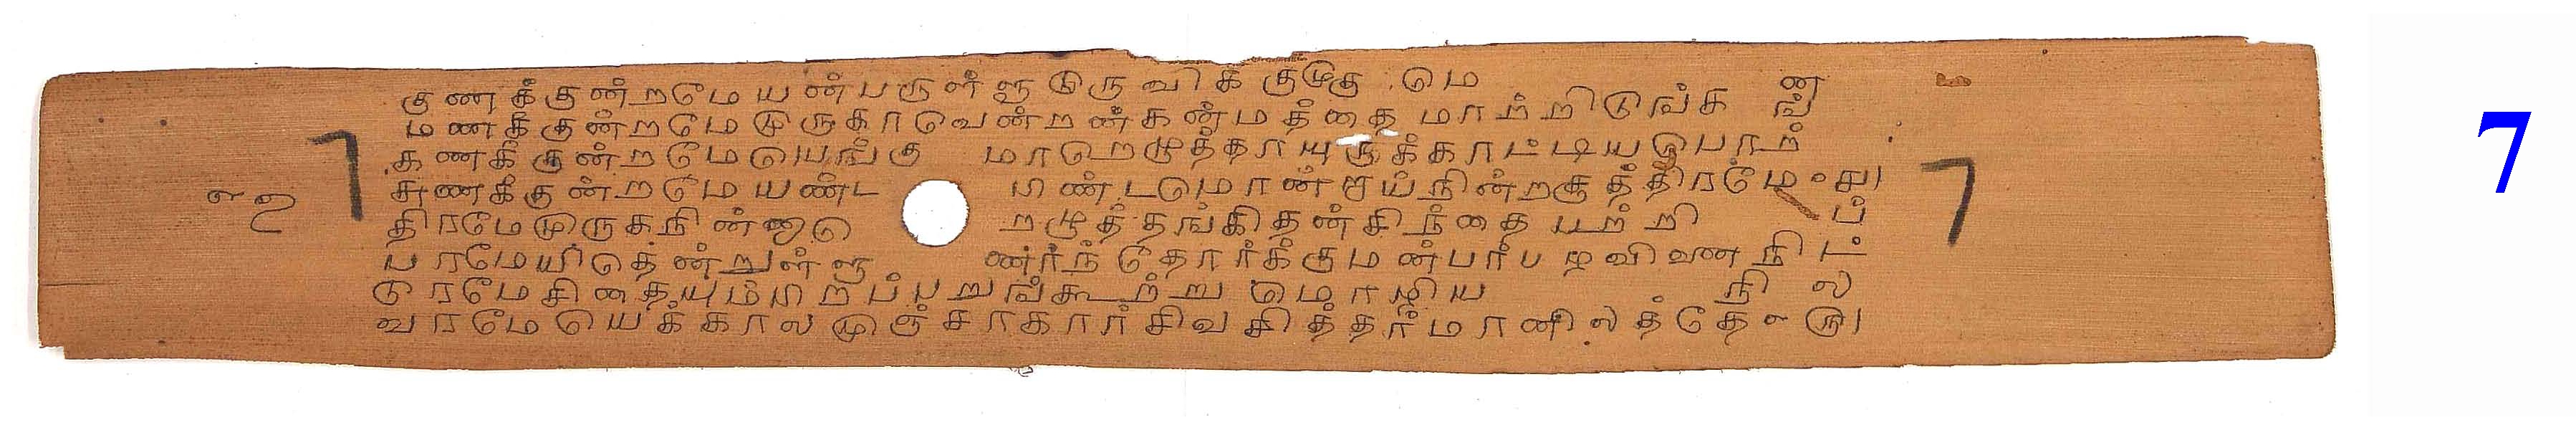 குணக்குன்றமேயன்பருள்ளூடுருவிக் குழகு மெ ண
மணக்குன்றமேமுருகாவென்றன்கன்மத்தை மாற்றிடுங்க ங்
கணக்குன்றமேயெங்கு மாறெழுத்தாயுருக்காட்டியபொற்
சுணக்குன்றமேயண்ட பிண்டமொன்றாய்நின்றசூத்திரமே
திரமேமுருகநின்னா றழுத்தங்கிதன்சிந்தை யுற்றி ப்
பரமேயிதென்றுள்ளூ ணர்ந்தோர்க்குமன்பர்
டுரமேசிதையும்பிறப்பறுங்கூற்று மொழிய நி ல
வரமேயெக்காலமுஞ்சாகார்சிவசித்தர்மானிலத்தே
7
7
7